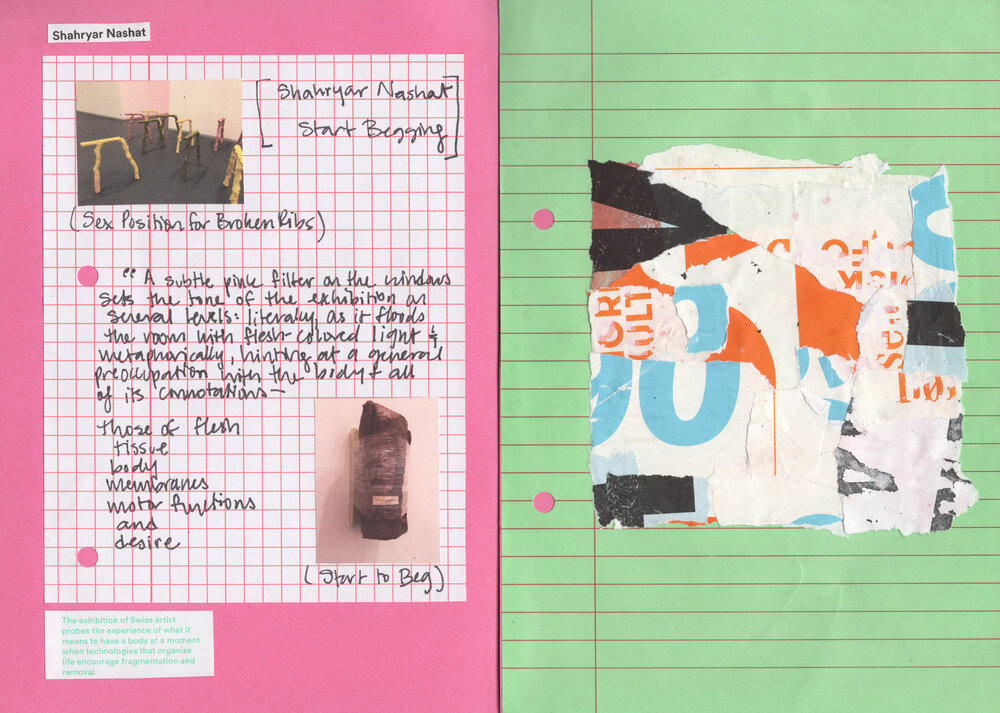 Shahryar Nashat
[Shahryar Nashat
Start Begging]
(Sex Position for Broken Ribs)
" A subtle pink filter on the windows
sets the tone of the exhibition on
several levels: literally, as it floods
the room with flesh-colored light &
metaphorically, hinting at a general
preoccupation with the body & all
of its connotations—
those of flesh
tissue
body
membranes
motor functions
and
desire
(Start to Beg)
The exhibition of Swiss artist
probes the experience of what it
means to have a body at a moment
when technologies that organize
life encourage fragmentation and
removal.
ORI
KULT